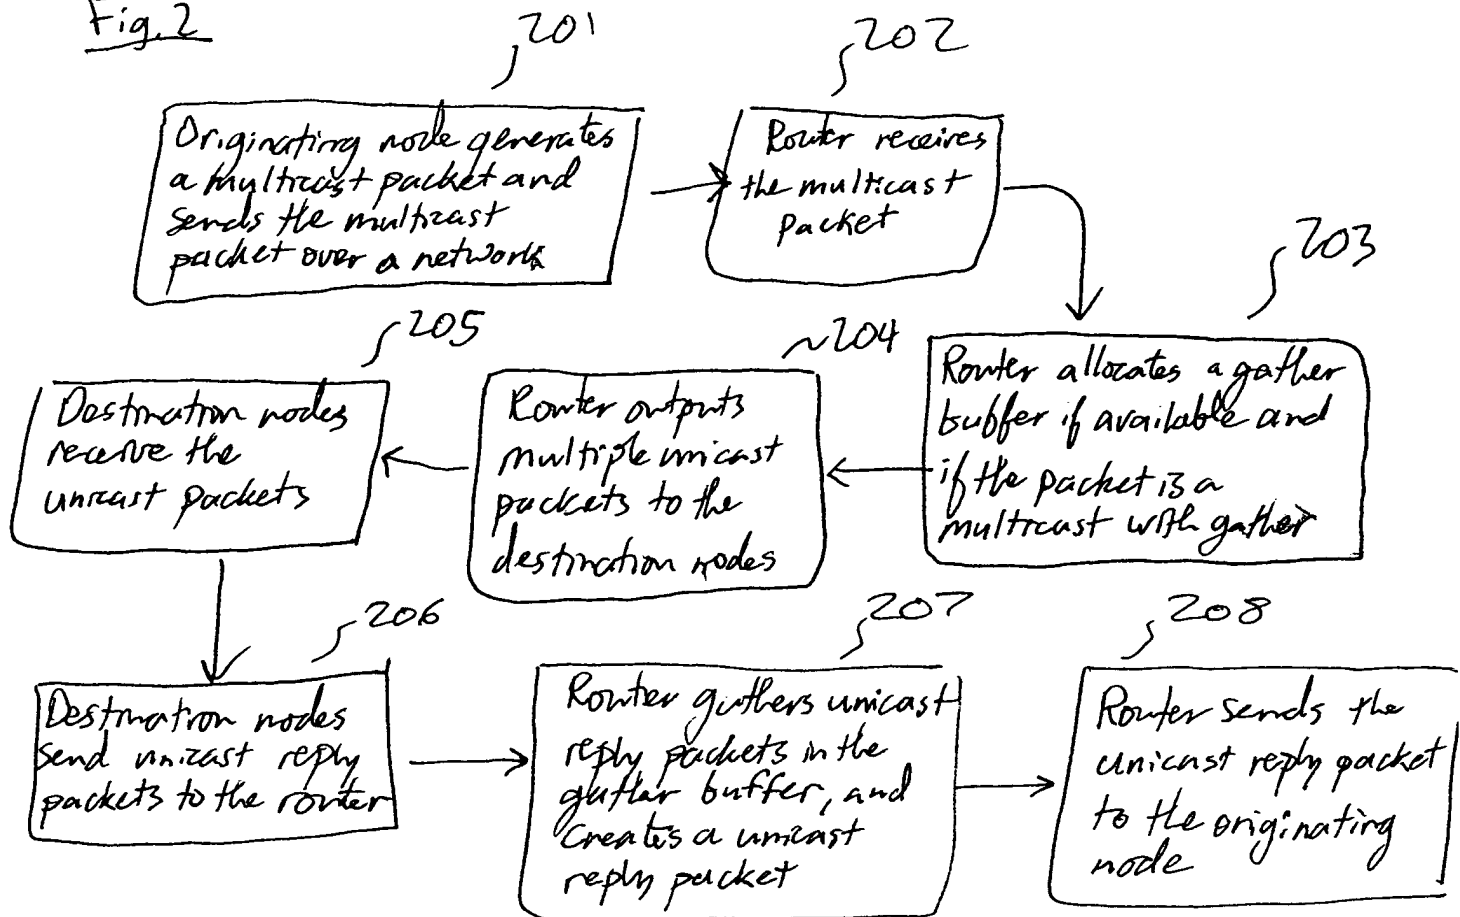 Fig. 2
201
Originating node generates
a multicast packet and
sends the multicast
packet over a network
202
Router receives
the multicast
packet
203
Router allocates a gather
buffer if available and
if the packet is a
multicast with gather
204
Router outputs
multiple unicast
packets to the
destination nodes
205
Destination nodes
receive the
unicast packets
206
Destination nodes
send unicast reply
packets to the router
207
Router gathers unicast
reply packets in the
gather buffer, and
creates a unicast
reply packet
208
Router sends the
unicast reply packet
to the originating
node